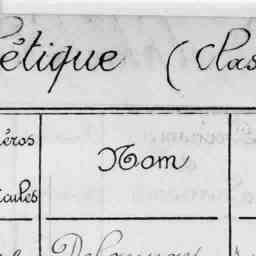 étique (Clas
éros
Nom
icules
Delaunay